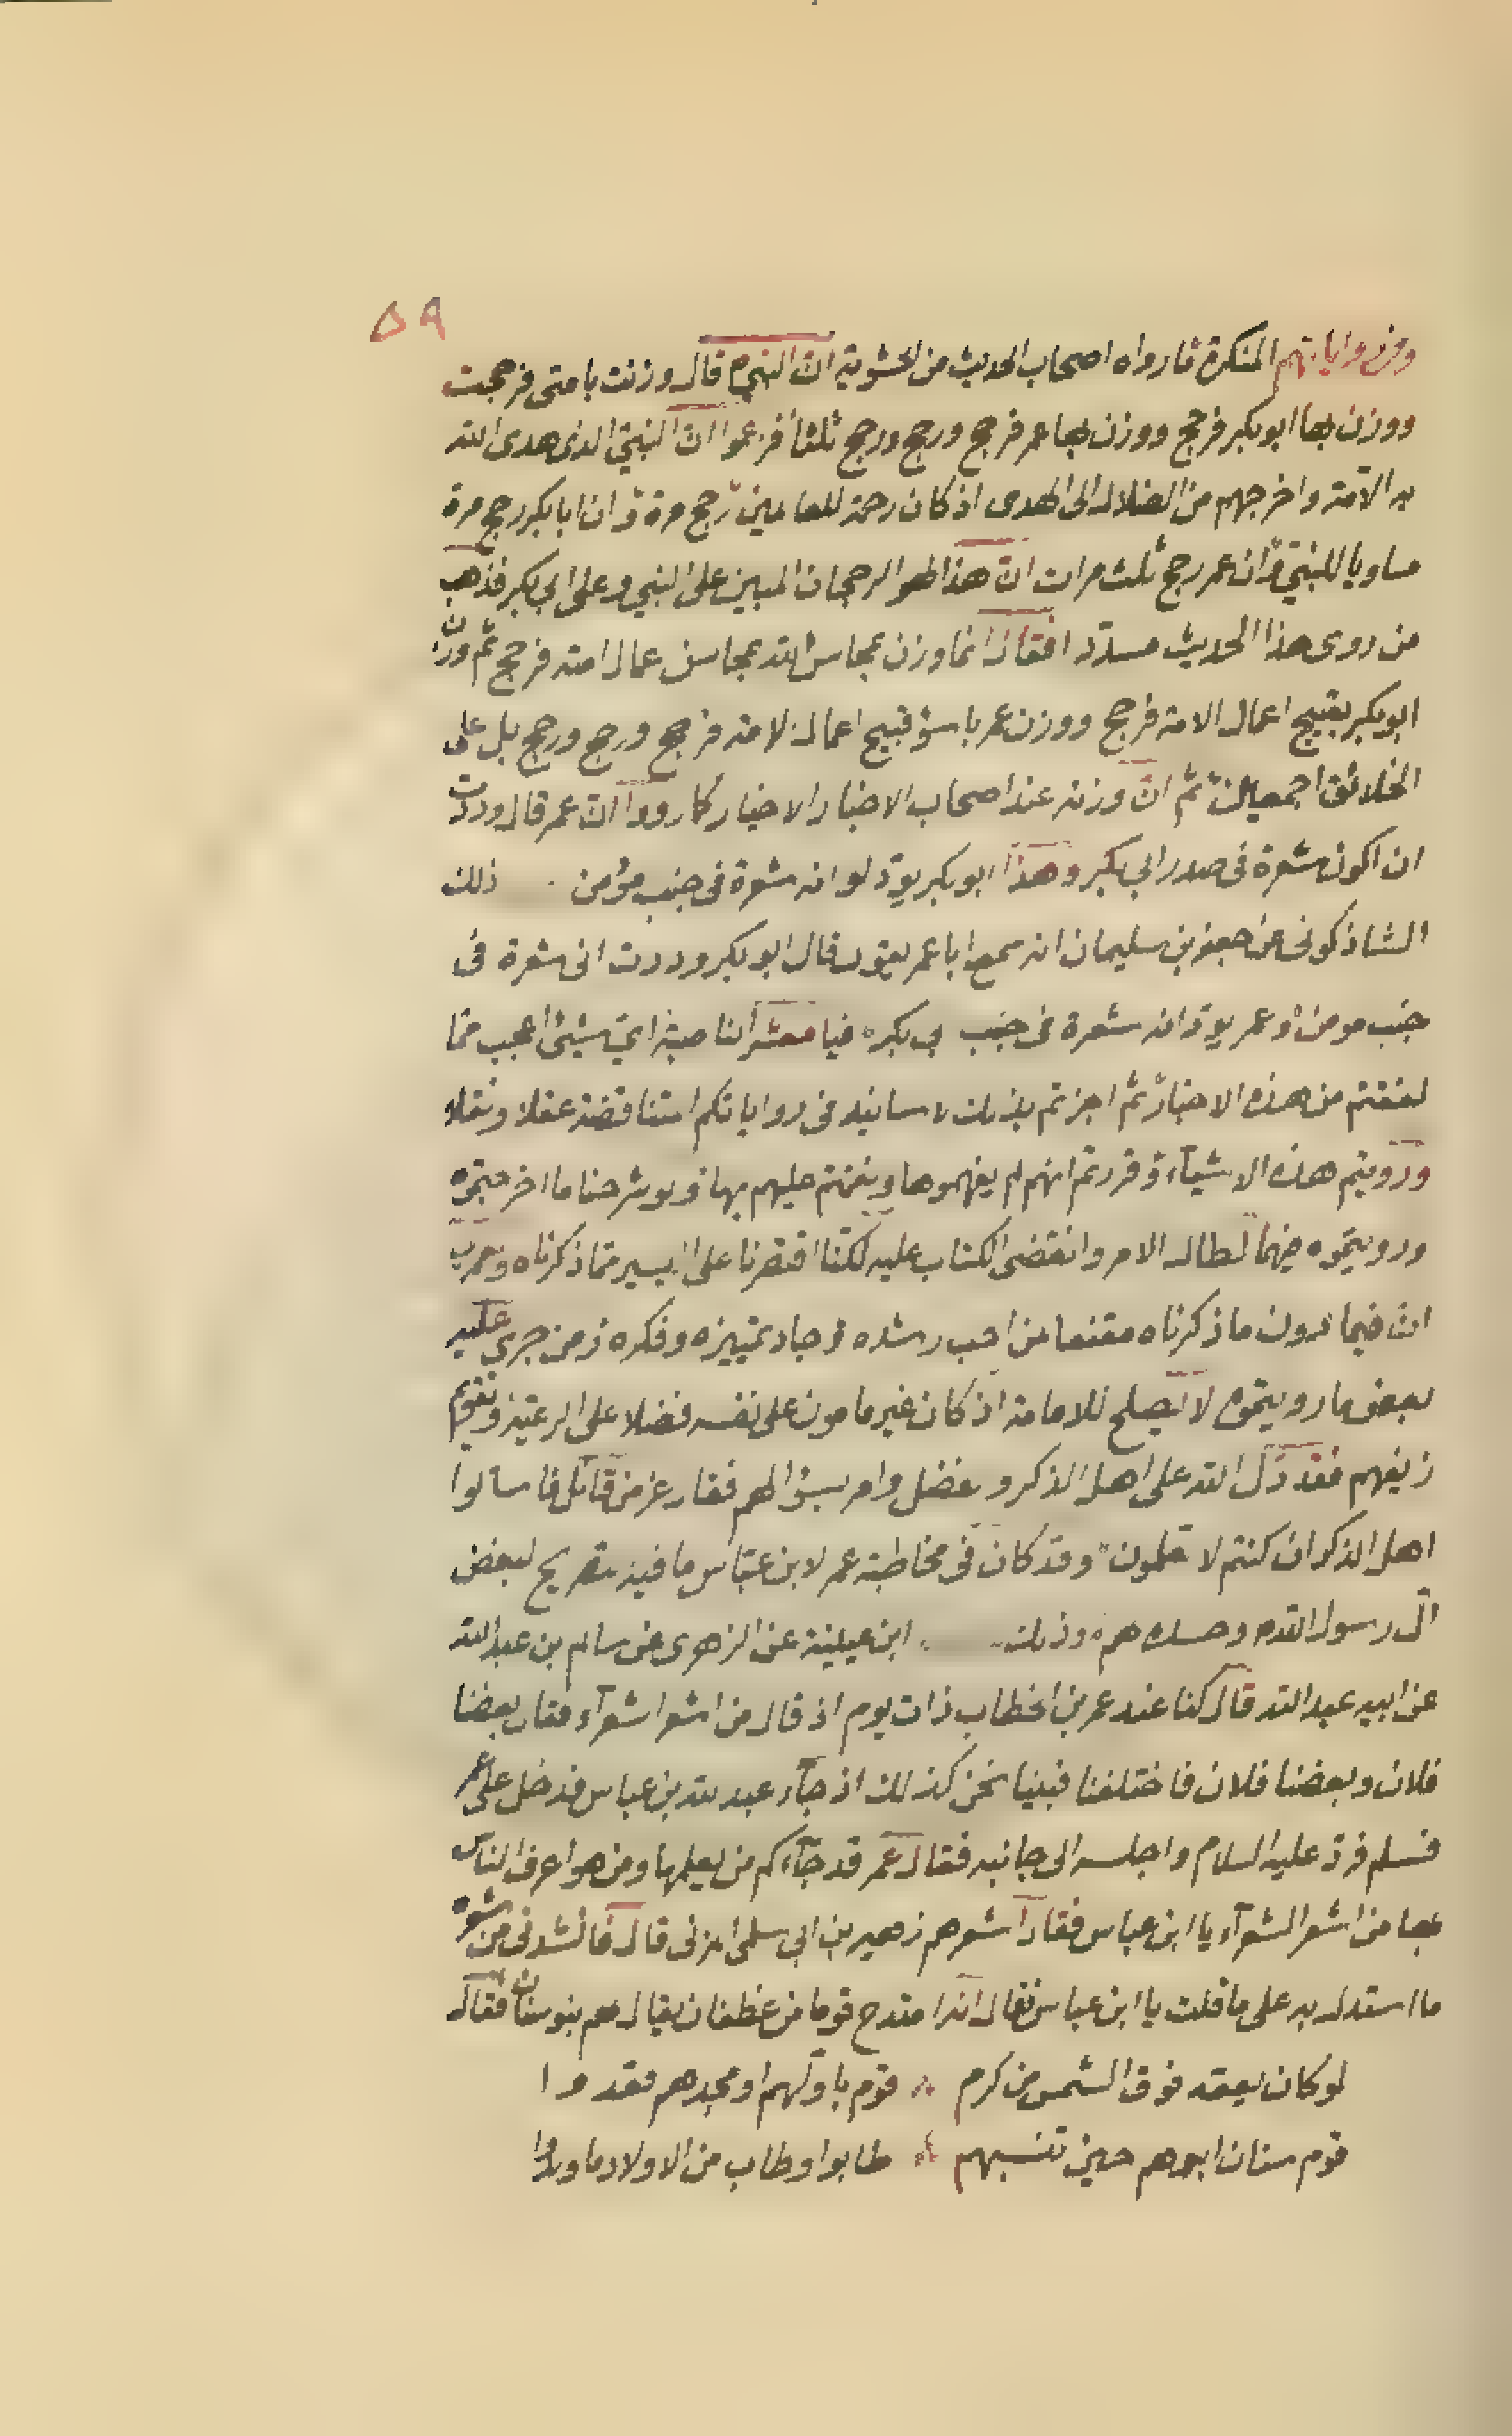 ٥٩
ومن رواياتهم المنكرة ما رواه اصحاب الحديث من الحشوية انّ النبي قال وزنت بامتى فرجحت
ووزن بها ابو بكر فرجح ووزن بها عمر فرجح ورجح ورجح ثلثا فزعموا انّ النبيّ الذى هدى الله
به الامّة واخرجهم من الضلالة الى الهدى اذ كان رحمة للعالمين رجح مرة وان ابا بكر رجح مرة
مساويا للنبيّ وان عمر رجح ثلث مرات انّ هذا لهو الرجحان المبين على النبي وعلى ابي بكر فذهب
من روى هذا الحديث فقال انما وزن بمحاسن اعمال امته فرجح ثم وزن
ابو بكر بقبيح اعمال الامة فرجح ووزن عمر باسؤ قبيح اعمال الامة فرجح ورجح ورجح بل على
الخلائق اجمعين ثمّ انّ وزنه عند اصحاب الاخبار الاخيار كما رووا انّ عمر قال وددت
ان اكون شعرة فى صدر ابي بكر وهذا ابو بكر يودّ لو انه شعرة فى جنب مؤمن ذلك
الشاذكونى عن جعفر بن سليمان انه سمع ابا عمر يقول قال ابو بكر وددت انى شعرة فى
جنب مومن وعمر يودّ انه شعرة فى جنب بى بكر فيا معشر الناصبة اىّ شيئ اعجب ممّا
من هذه الاخبار ثمّ اجزتم فى رواياتكم المتناقضة عقلا ونقلا
ورويتم هذه الاشيآء وقررتم انهم لم يفهموها عليهم بها ولو شرحنا ما اخرجتموه
ورويتموه فيهما لطال الامر وانقضى الكتاب عليه لكنّا اقتصرنا على اليسير ممّا ذكرناه
انّ فيما دون ما ذكرناه مقنعا من احب رشده وجاد تمييزه وفكره ومن جرى عليه
بعض ما رويتموه لا يصلح للامامة اذ كان غير مامون على نفسه فضلا على الرعيّة
فقد دلّ الله على اهل الذكر وامر بسؤالهم فقال عز من قائل فاسألوا
اهل الذكر ان كنتم لا تعلمون وقد كان فى مخاطبة عمر لابن عبّاس ما فيه تصريح لبعض
آل رسول الله وحسده وذلك ابن عيينة عن الزهرى عن سالم بن عبد الله
عن ابيه عبد الله قال كنا عند عمر بن الخطاب ذات يوم اذ قال من اشعر الشعرآء فقال بعضنا
فلان وبعضنا فلان فاختلفنا فبينا نحن كذلك اذ جآء عبد الله بن عباس فدخل على عمر
فسلم فردّ عليه السلام واجلسه الى جانبه فقال عمر قد جآءكم من يعلمها ومن هو اعرف الناس
بها من اشعر الشعرآء يا ابن عباس فقال اشعرهم زهير بن ابي سلمى المزنى قال فانشدنى من شعره
ما استدل به على ما قلت يا ابن عباس فقال انه امتدح قوما من غطفان يقال لهم بنو سنان فقال
لو كان يقعد فوق الشمس من كرم ∴ قوم باوّلهم او مجدهم قعدوا
قوم سنان ابوهم حين تنسبهم ∴ طابوا وطاب من الاولاد ما ولدوا